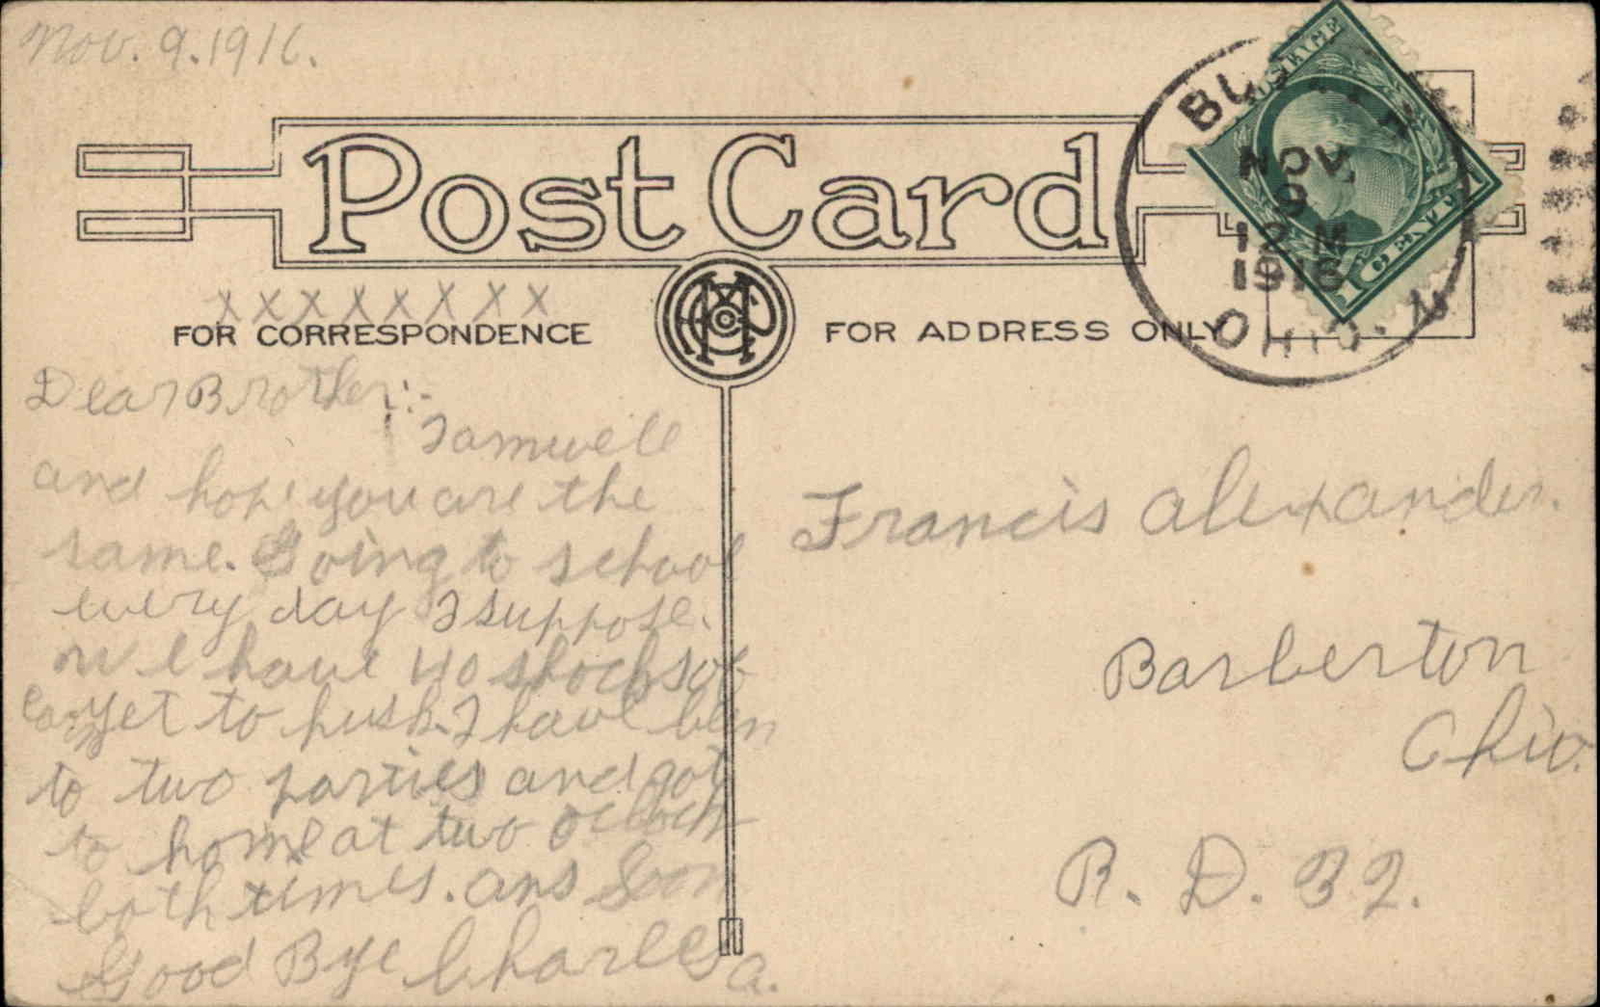 Nov. 9. 1916.
Post Card
POSTAGE
NOV.
9
12 M
1916
OHIO.
1 CENT 1
XXXXXXXX
FOR CORRESPONDENCE
FOR ADDRESS ONLY
Dear Brother:-
I am well
and hope you are the
same. Going to school
every day I suppose.
We have 40 shocks of
corn yet to husk. I have ben
to two parties and got
to home at two oclock
both times. ans Soon
Good Bye Charles A.
Francis Alexander.
Barberton
Ohio.
R. D. 32.